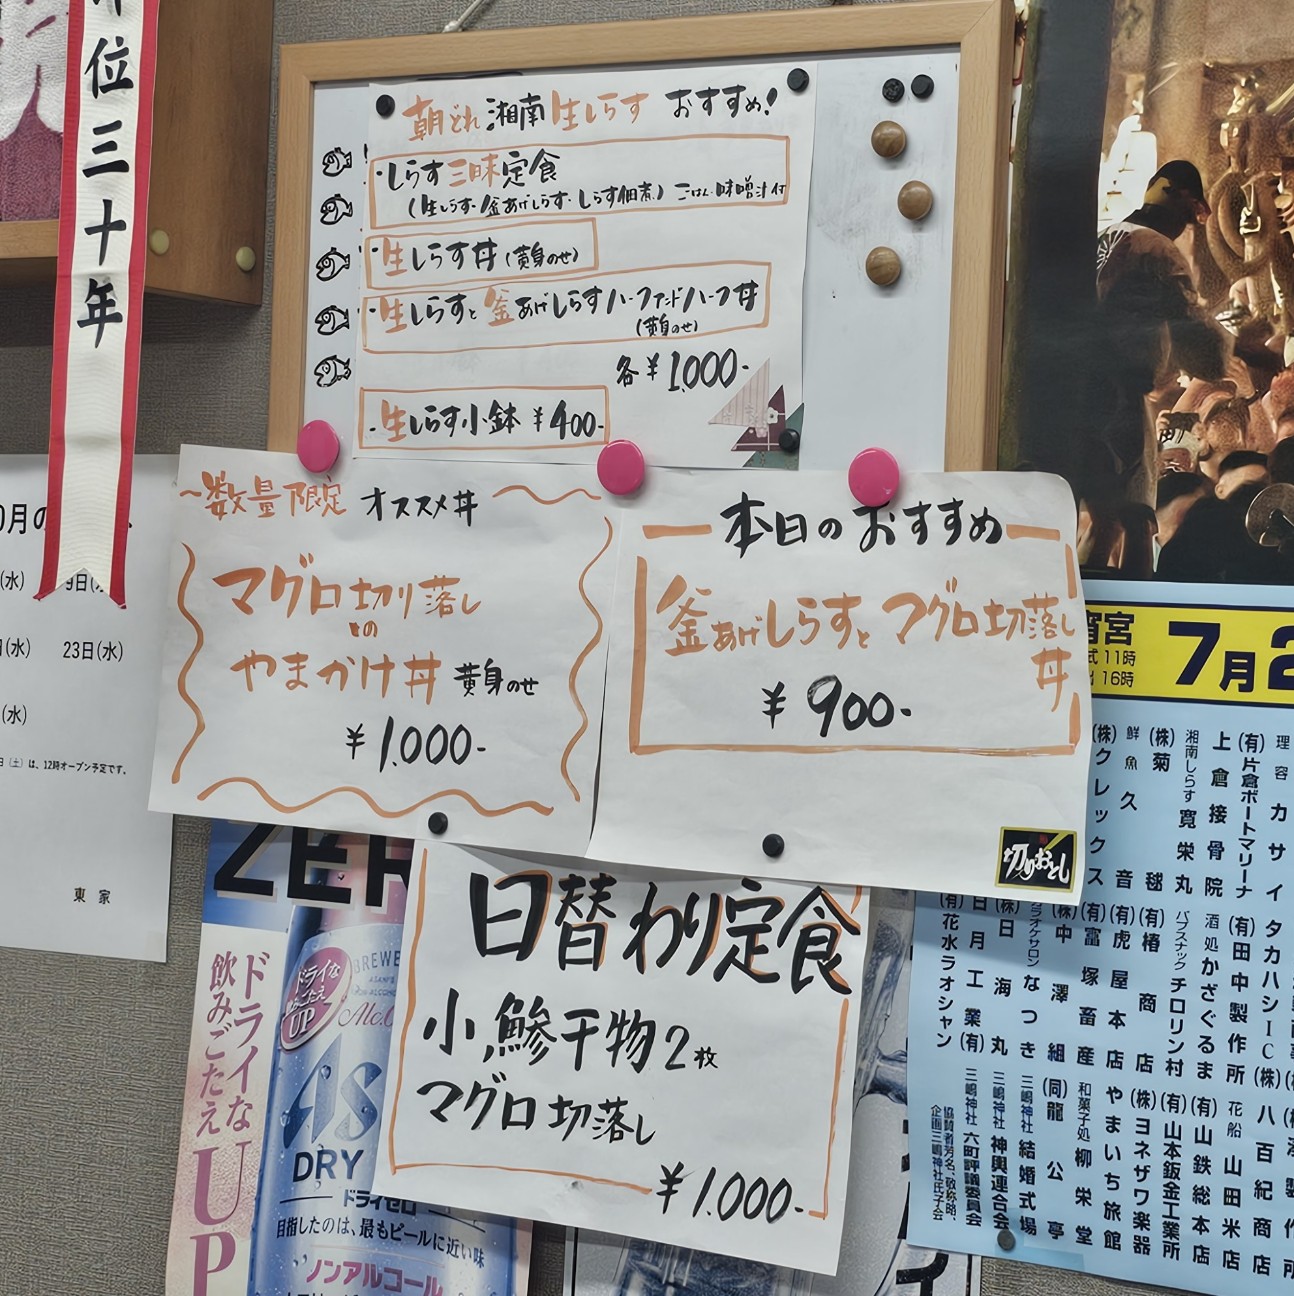 位三十年
朝どれ湘南生しらす おすすめ!
・しらす三昧定食
(生しらす・釜あげしらす・しらす佃煮) ごはん・味噌汁付
・生しらす丼(黄身のせ)
・生しらすと釜あげしらすハーフアンドハーフ丼
(黄身のせ)
各¥1,000-
・生しらす小鉢 ¥400-
~数量限定 オススメ丼
マグロ切り落し
との
やまかけ丼 黄身のせ
¥1,000-
本日のおすすめ
釜あげしらすとマグロ切落し
丼
¥900-
切りおとし
日替わり定食
小鯵干物2枚
マグロ切落し
¥1,000-
0月の
(水)
9日(水)
(水)
23日(水)
(水)
(土)は、12時オープン予定です。
東家
ZER
ドライな
飲みごたえUP
ドライな
飲みごたえ
UP
BREWE
Alc.0
AS
DRY
ドライゼロ
目指したのは、最もビールに近い味
ノンアルコール
宵宮
式 11時
16時
7月2
理容カサイ
(有)片倉ボートマリーナ
上倉接骨院
湘南しらす 寛栄丸
(株)菊毬
鮮魚久音
(株)クレックス
タカハシIC(株)
(有)田中製作所
酒処かざぐるま
パブスナック チロリン村
(有)椿商店
(有)虎屋本店
(有)富塚畜産
(株)中澤組
カラオケサロン なつき
(株)日海丸
日月工業(有)
(有)花水ラオシャン
八百紀商店
花船山田米店
(有)山鉄総本店
(有)山本鈑金工業所
(株)ヨネザワ楽器
やまいち旅館
和菓子処 柳栄堂
(同)龍公亭
三嶋神社 結婚式場
三嶋神社 神輿連合会
三嶋神社 六町評議委員会
協賛者芳名、敬称略、
企画三嶋神社氏子会